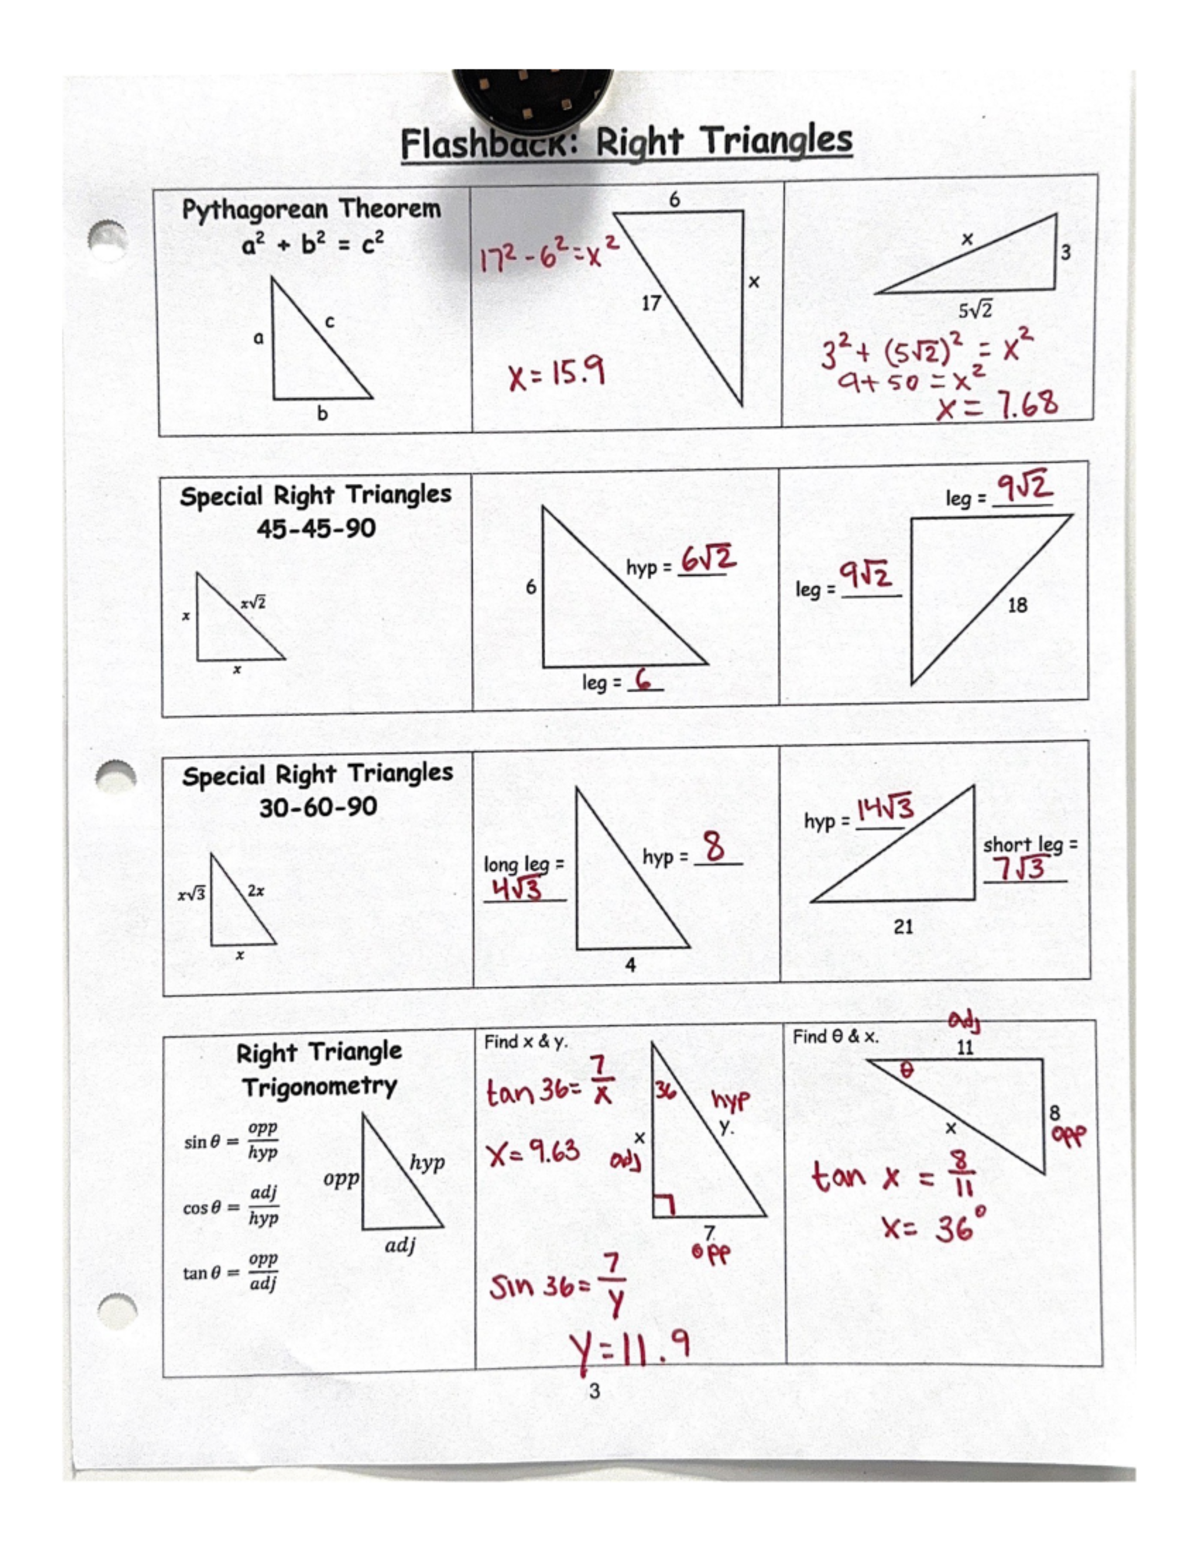 Flashback: Right Triangles
Pythagorean Theorem
a² + b² = c²
a
c
b
6
17² - 6² = x²
17
x
x = 15.9
x
3
5√2
3² + (5√2)² = x²
9 + 50 = x²
x = 7.68
Special Right Triangles
45-45-90
x
x√2
x
6
hyp = 6√2
leg = 6
leg = 9√2
leg = 9√2
18
Special Right Triangles
30-60-90
x√3
2x
x
long leg =
4√3
hyp = 8
4
hyp = 14√3
short leg =
7√3
21
Right Triangle
Trigonometry
sin θ = opp/hyp
cos θ = adj/hyp
tan θ = opp/adj
opp
hyp
adj
Find x & y.
tan 36 = 7/x
x = 9.63
36
hyp
y.
x
adj
7.
opp
sin 36 = 7/y
y = 11.9
Find θ & x.
adj
11
θ
8
opp
x
tan x = 8/11
x = 36°
3